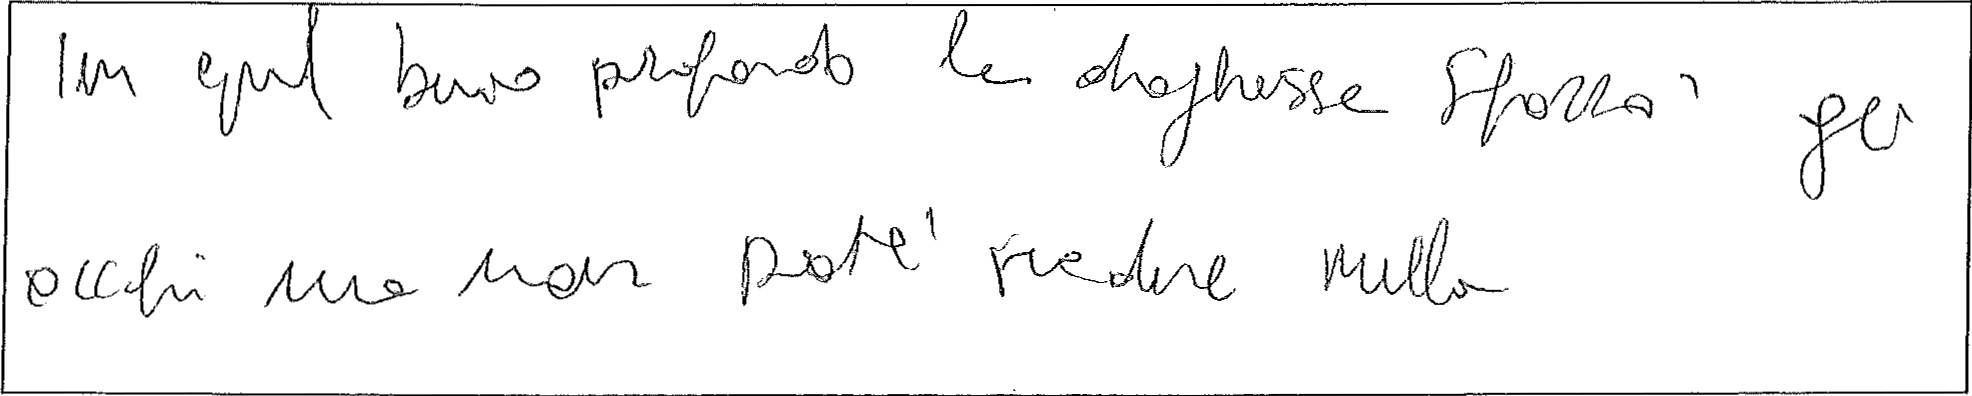 In quel buio profondo la draghessa spalancò gli
occhi ma non poté vedere nulla